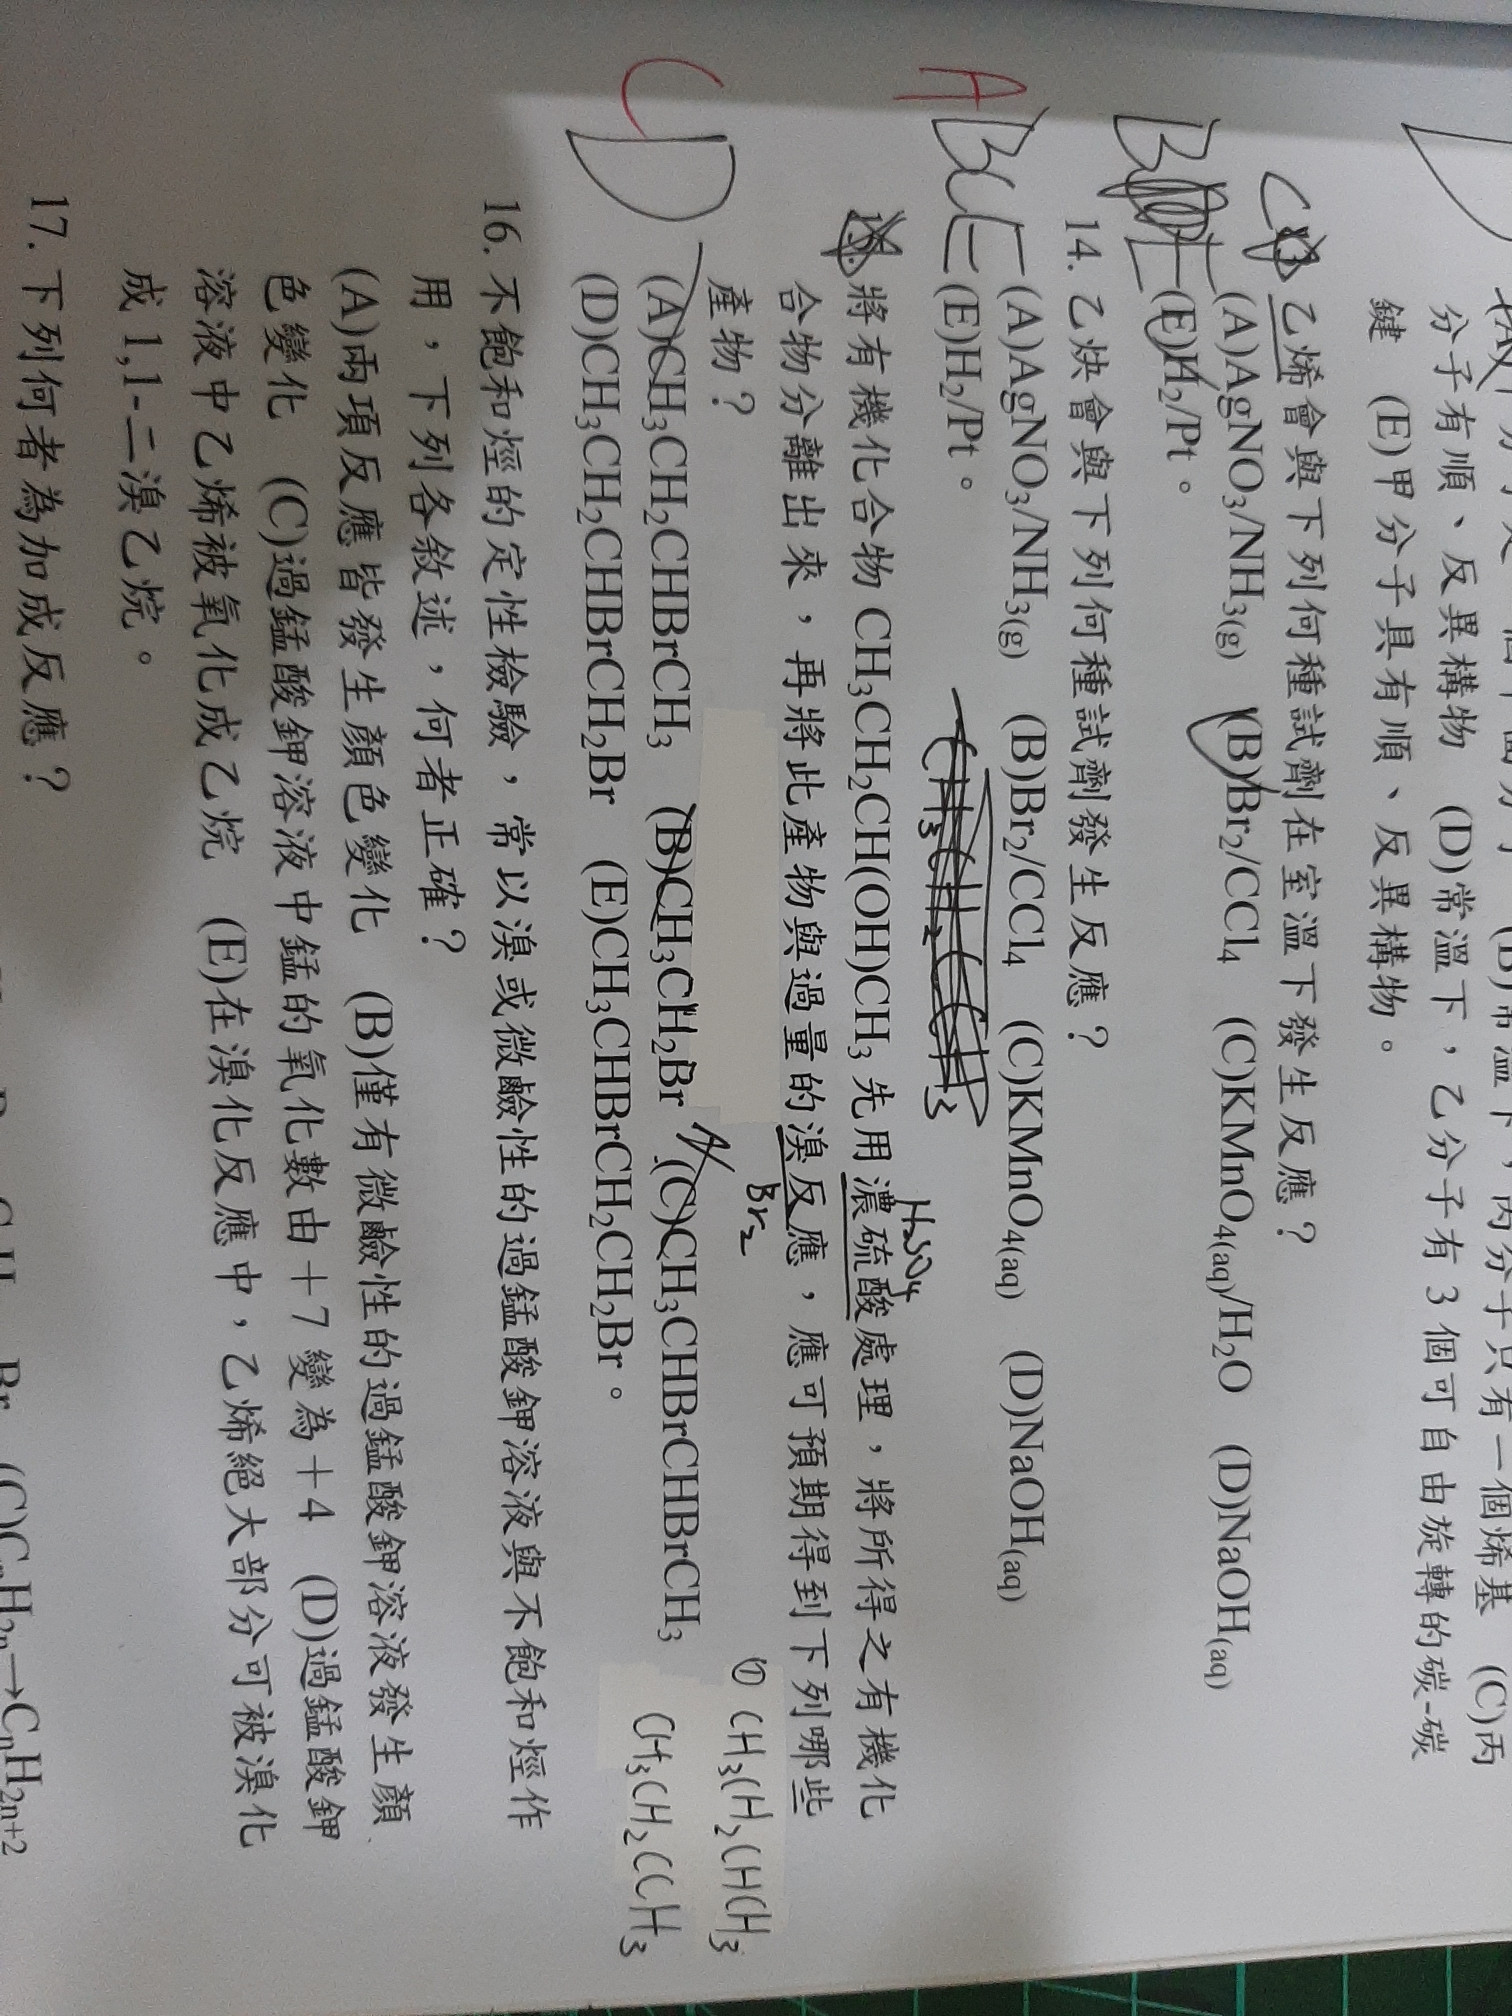 分子有順、反異構物 (D)常溫下，乙分子有3個可自由旋轉的碳-碳
鍵 (E)甲分子具有順、反異構物。
乙烯會與下列何種試劑在室溫下發生反應？
(A)AgNO₃/NH₃(g) (B)Br₂/CCl₄ (C)KMnO₄(aq)/H₂O (D)NaOH(aq)
(E)H₂/Pt。
14. 乙炔會與下列何種試劑發生反應？
(A)AgNO₃/NH₃(g) (B)Br₂/CCl₄ (C)KMnO₄(aq) (D)NaOH(aq)
ABCE
(E)H₂/Pt。
H₂SO₄
將有機化合物 CH₃CH₂CH(OH)CH₃ 先用濃硫酸處理，將所得之有機化
合物分離出來，再將此產物與過量的溴反應，應可預期得到下列哪些
產物？
Br₂
① CH₃CH₂CHCH₃
(A)CH₃CH₂CHBrCH₃ (B)CH₃CH₂Br (C)CH₃CHBrCHBrCH₃
CH₃CH₂CCH₃
CD
(D)CH₃CH₂CHBrCH₂Br (E)CH₃CHBrCH₂CH₂Br。
16. 不飽和烴的定性檢驗，常以溴或微鹼性的過錳酸鉀溶液與不飽和烴作
用，下列各敘述，何者正確？
(A)兩項反應皆發生顏色變化 (B)僅有微鹼性的過錳酸鉀溶液發生顏
色變化 (C)過錳酸鉀溶液中錳的氧化數由＋7變為＋4 (D)過錳酸鉀
溶液中乙烯被氧化成乙烷 (E)在溴化反應中，乙烯絕大部分可被溴化
成1,1-二溴乙烷。
17. 下列何者為加成反應？